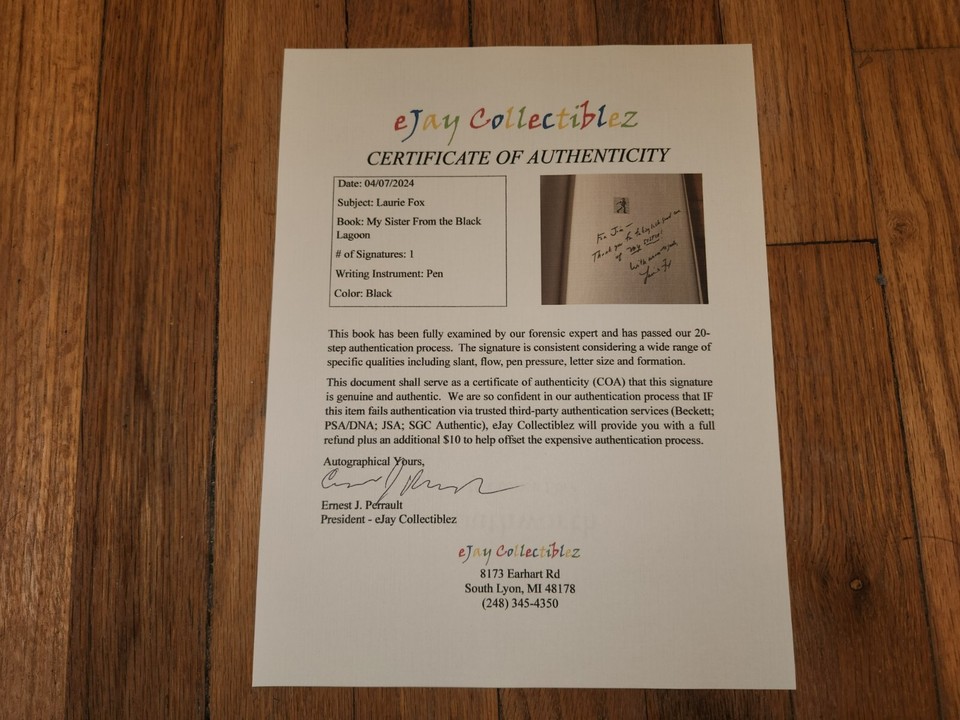 eJay Collectiblez
CERTIFICATE OF AUTHENTICITY
Date: 04/07/2024
Subject: Laurie Fox
Book: My Sister From the Black
Lagoon
# of Signatures: 1
Writing Instrument: Pen
Color: Black
For Jim —
Thank you for
of my sister!
This book has been fully examined by our forensic expert and has passed our 20-
step authentication process. The signature is consistent considering a wide range of
specific qualities including slant, flow, pen pressure, letter size and formation.
This document shall serve as a certificate of authenticity (COA) that this signature
is genuine and authentic. We are so confident in our authentication process that IF
this item fails authentication via trusted third-party authentication services (Beckett;
PSA/DNA; JSA; SGC Authentic), eJay Collectiblez will provide you with a full
refund plus an additional $10 to help offset the expensive authentication process.
Autographical Yours,
Ernest J. Perrault
President - eJay Collectiblez
eJay Collectiblez
8173 Earhart Rd
South Lyon, MI 48178
(248) 345-4350